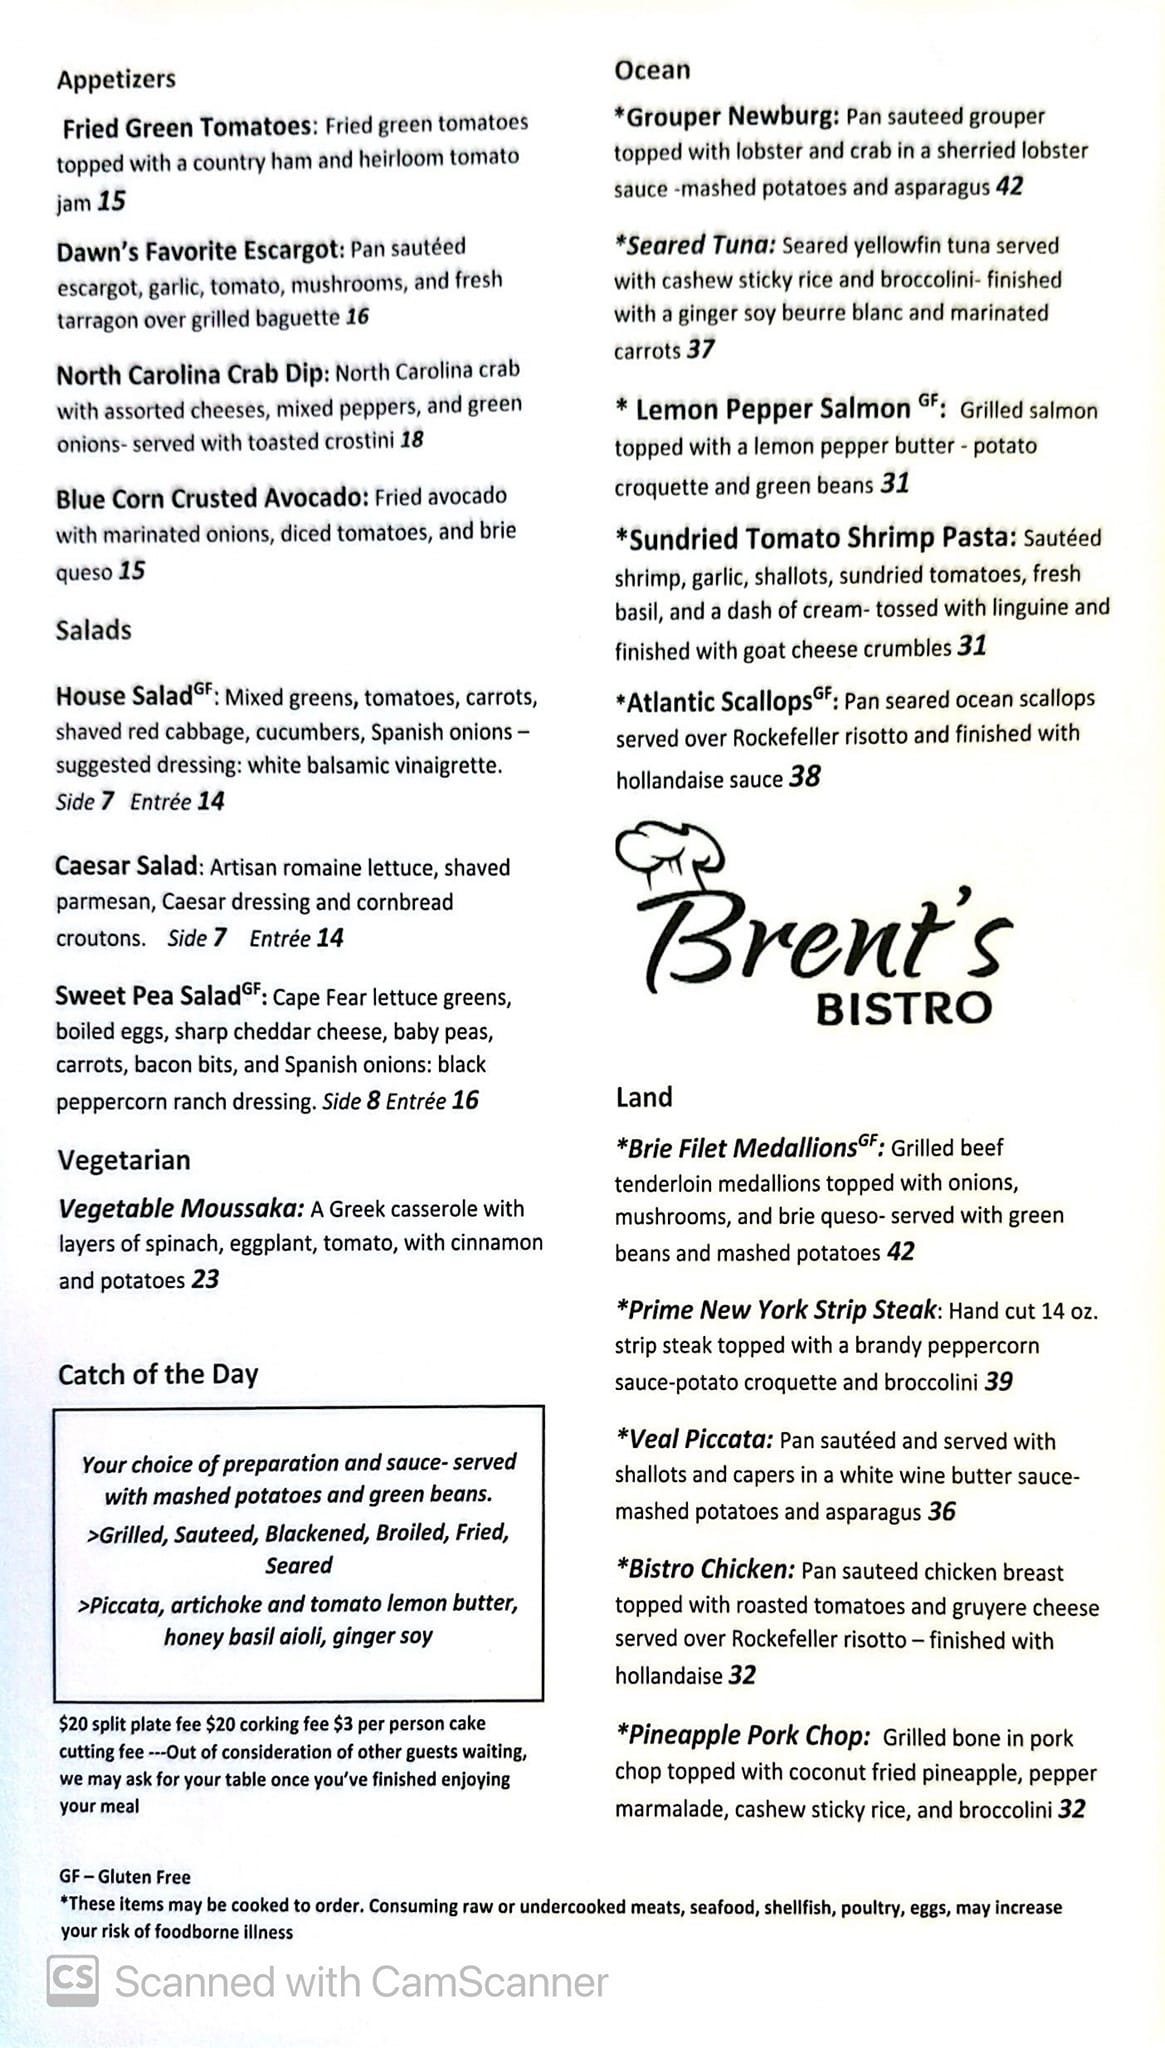 Appetizers
Fried Green Tomatoes: Fried green tomatoes
topped with a country ham and heirloom tomato
jam 15
Dawn's Favorite Escargot: Pan sautéed
escargot, garlic, tomato, mushrooms, and fresh
tarragon over grilled baguette 16
North Carolina Crab Dip: North Carolina crab
with assorted cheeses, mixed peppers, and green
onions- served with toasted crostini 18
Blue Corn Crusted Avocado: Fried avocado
with marinated onions, diced tomatoes, and brie
queso 15
Salads
House Salad GF: Mixed greens, tomatoes, carrots,
shaved red cabbage, cucumbers, Spanish onions –
suggested dressing: white balsamic vinaigrette.
Side 7 Entrée 14
Caesar Salad: Artisan romaine lettuce, shaved
parmesan, Caesar dressing and cornbread
croutons. Side 7 Entrée 14
Sweet Pea Salad GF: Cape Fear lettuce greens,
boiled eggs, sharp cheddar cheese, baby peas,
carrots, bacon bits, and Spanish onions: black
peppercorn ranch dressing. Side 8 Entrée 16
Vegetarian
Vegetable Moussaka: A Greek casserole with
layers of spinach, eggplant, tomato, with cinnamon
and potatoes 23
Catch of the Day
Your choice of preparation and sauce- served
with mashed potatoes and green beans.
>Grilled, Sauteed, Blackened, Broiled, Fried,
Seared
>Piccata, artichoke and tomato lemon butter,
honey basil aioli, ginger soy
$20 split plate fee $20 corking fee $3 per person cake
cutting fee ---Out of consideration of other guests waiting,
we may ask for your table once you've finished enjoying
your meal
Ocean
*Grouper Newburg: Pan sauteed grouper
topped with lobster and crab in a sherried lobster
sauce -mashed potatoes and asparagus 42
*Seared Tuna: Seared yellowfin tuna served
with cashew sticky rice and broccolini- finished
with a ginger soy beurre blanc and marinated
carrots 37
* Lemon Pepper Salmon GF: Grilled salmon
topped with a lemon pepper butter - potato
croquette and green beans 31
*Sundried Tomato Shrimp Pasta: Sautéed
shrimp, garlic, shallots, sundried tomatoes, fresh
basil, and a dash of cream- tossed with linguine and
finished with goat cheese crumbles 31
*Atlantic Scallops GF: Pan seared ocean scallops
served over Rockefeller risotto and finished with
hollandaise sauce 38
Brent's
BISTRO
Land
*Brie Filet Medallions GF: Grilled beef
tenderloin medallions topped with onions,
mushrooms, and brie queso- served with green
beans and mashed potatoes 42
*Prime New York Strip Steak: Hand cut 14 oz.
strip steak topped with a brandy peppercorn
sauce-potato croquette and broccolini 39
*Veal Piccata: Pan sautéed and served with
shallots and capers in a white wine butter sauce-
mashed potatoes and asparagus 36
*Bistro Chicken: Pan sauteed chicken breast
topped with roasted tomatoes and gruyere cheese
served over Rockefeller risotto – finished with
hollandaise 32
*Pineapple Pork Chop: Grilled bone in pork
chop topped with coconut fried pineapple, pepper
marmalade, cashew sticky rice, and broccolini 32
GF – Gluten Free
*These items may be cooked to order. Consuming raw or undercooked meats, seafood, shellfish, poultry, eggs, may increase
your risk of foodborne illness
CS Scanned with CamScanner